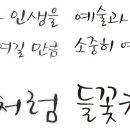 인생을 예술과
여길 만큼 소중히 여
처럼 들꽃